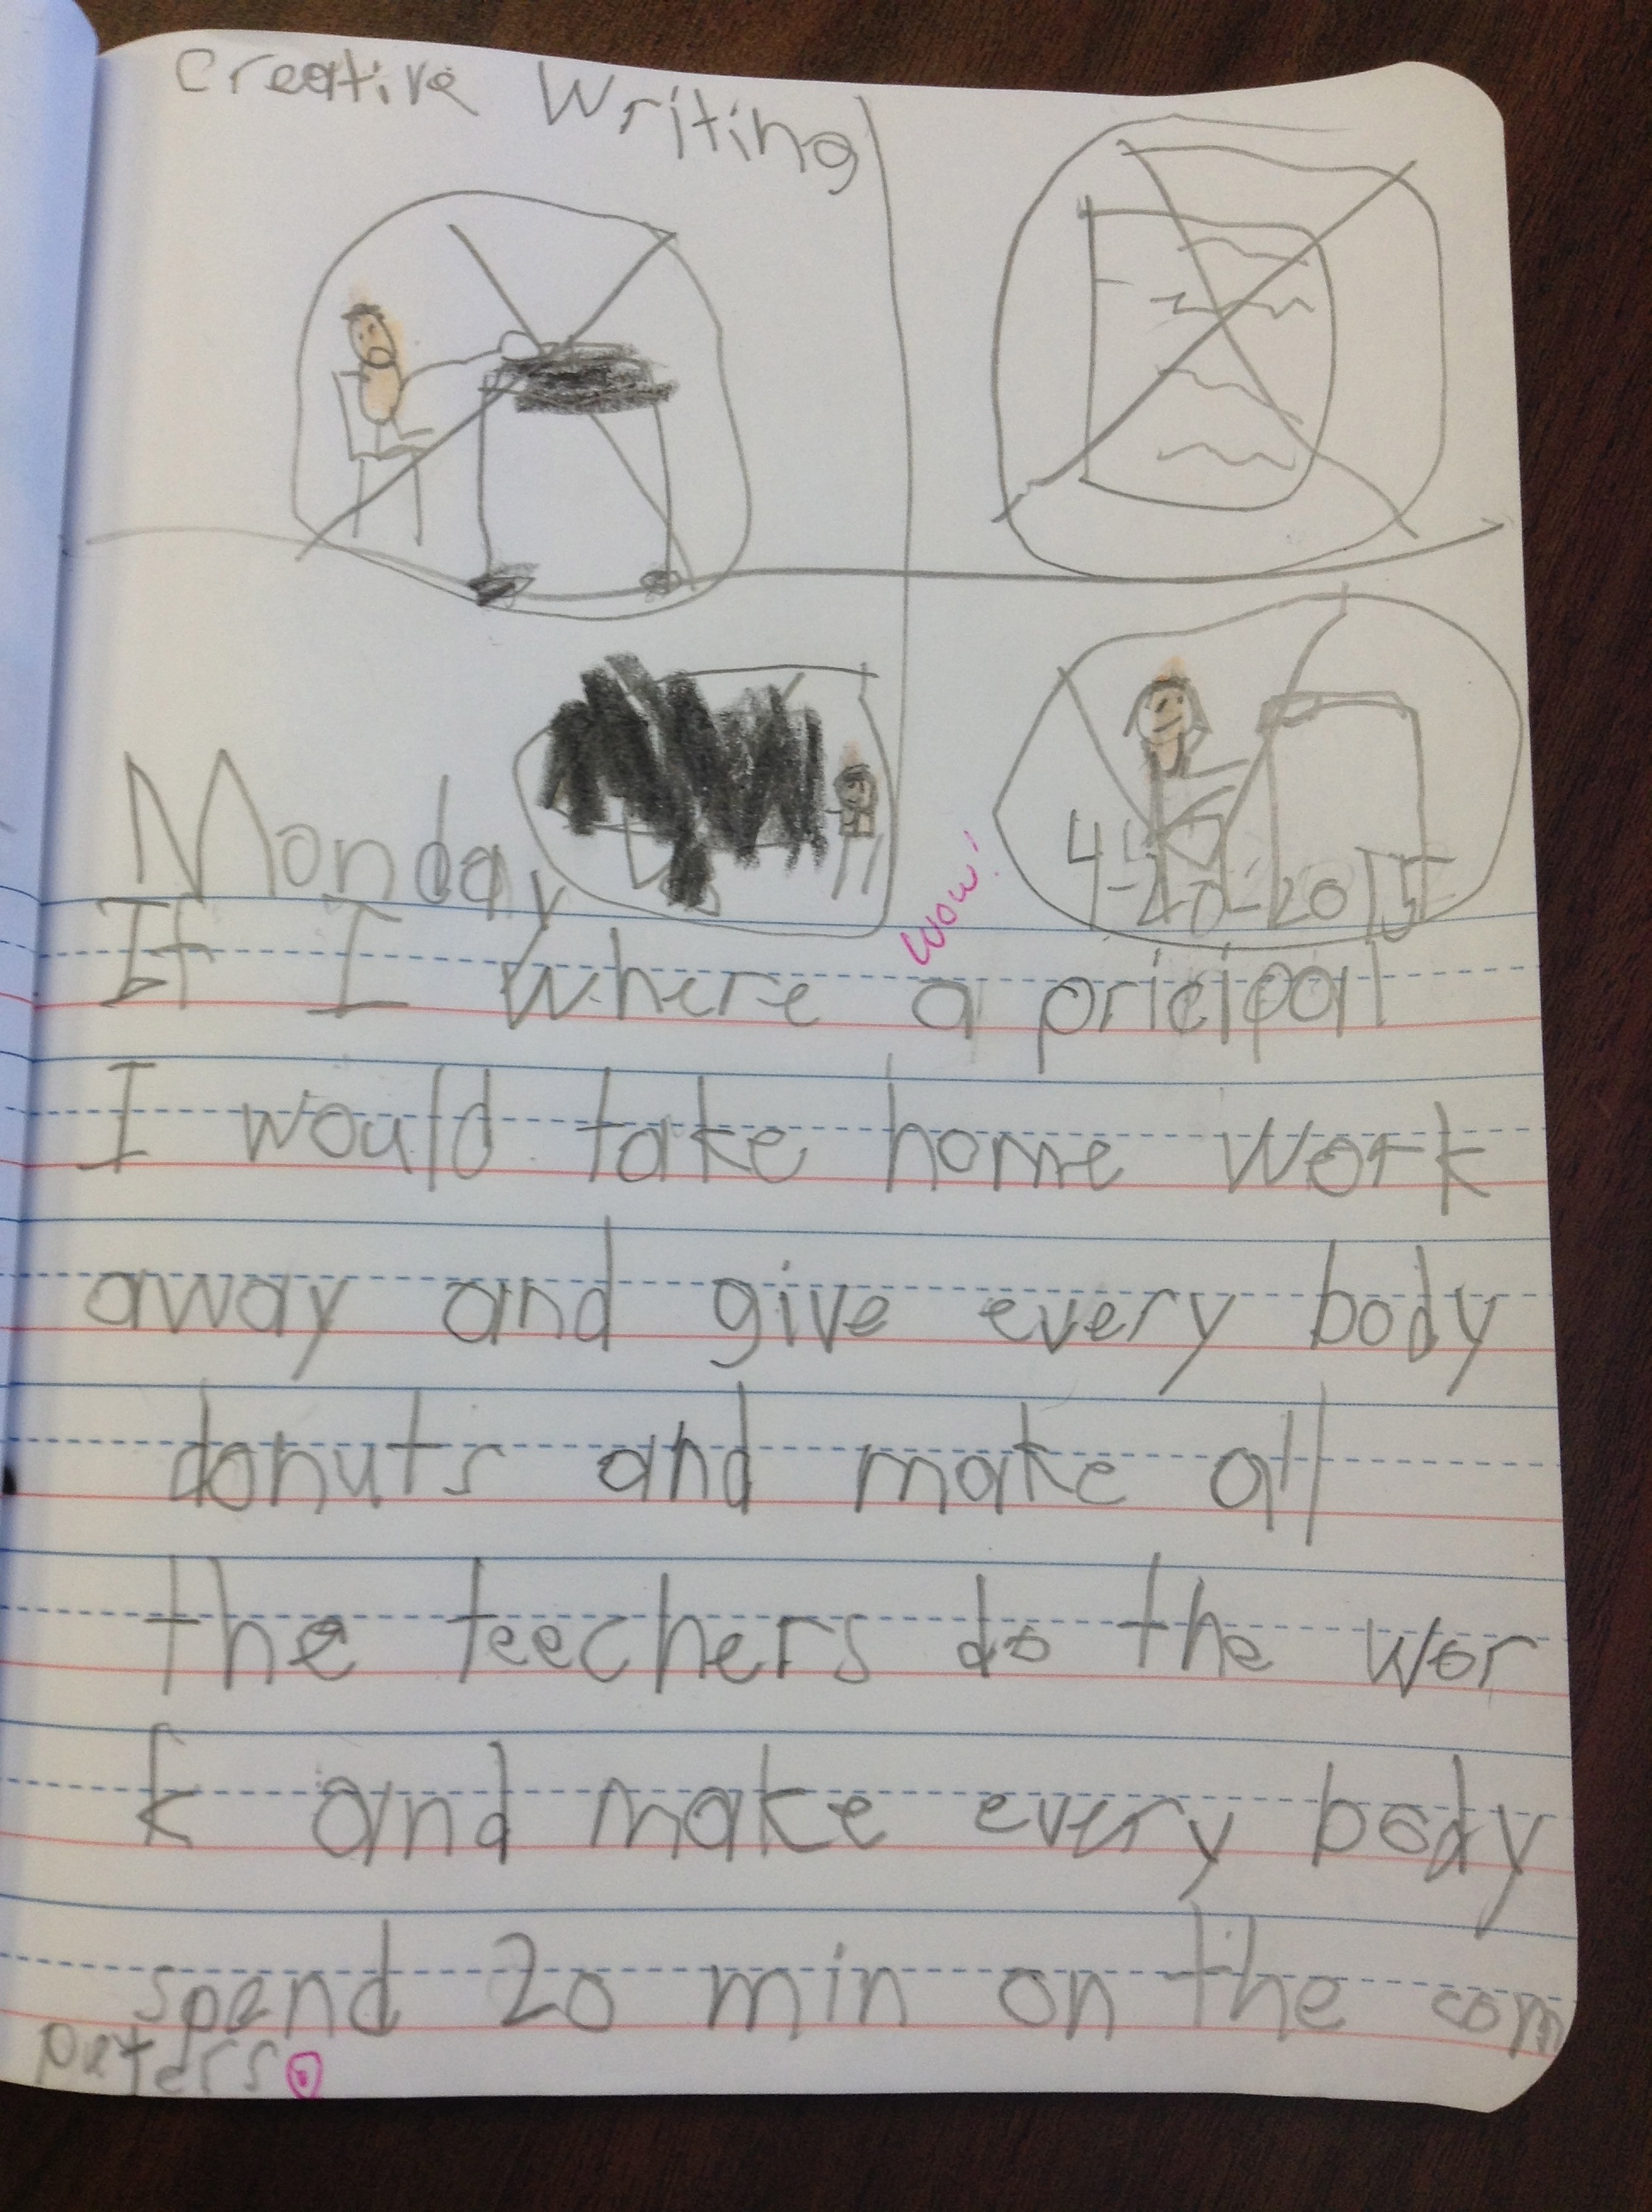 Creative Writing
Monday
4-20-2015
wow!
If I where a pricipal
I would take home work
away and give every body
donuts and make all
the teechers do the wor
k and make every body
spend 20 min on the com
puters.